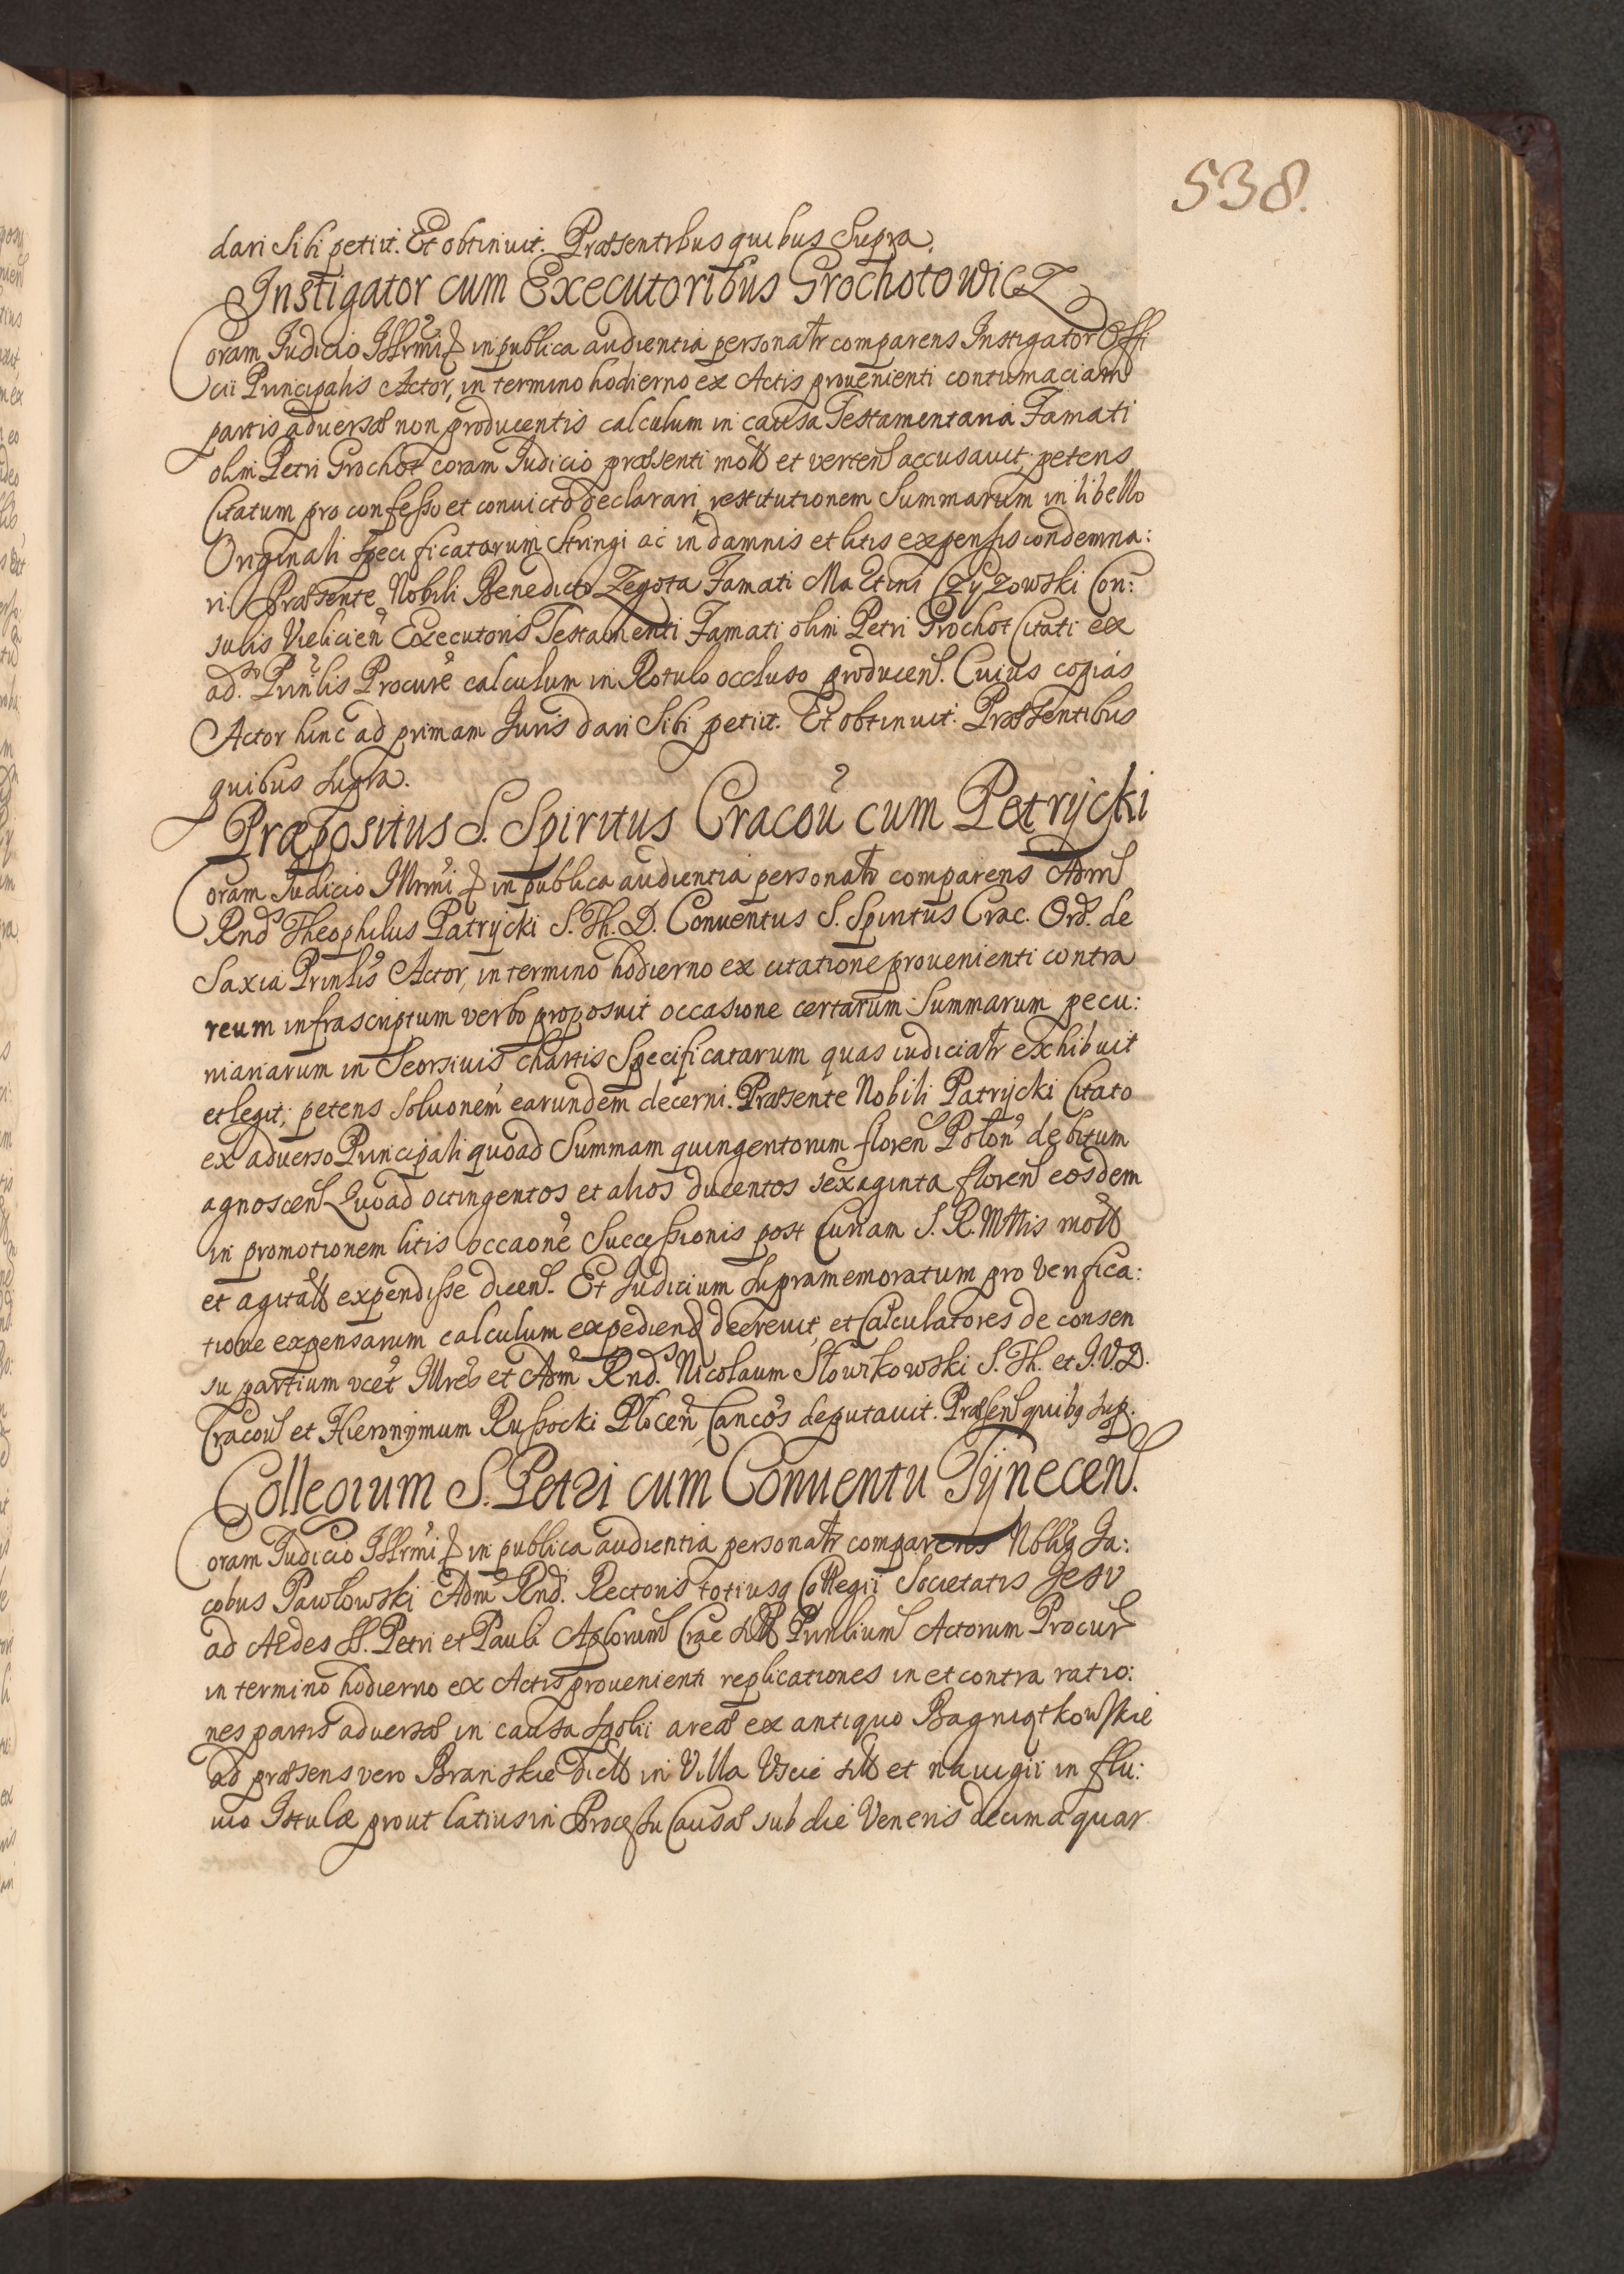 538.
dari Sibi petiit. Et obtinuit. Præsentibus quibus Supra.
Instigator cum Executoribus Grochotowicz
Coram Judicio Illrmi in publica audientia personatr comparens Instigator Offi
cii Principalis Actor, in termino hodierno ex Actis prouenienti contumaciam
partis aduersæ non producentis calculum in causa Testamentaria Famati
olim Petri Grochot coram Judicio præsenti mott et verten accusauit; petens
Citatum pro confesso et conuicto declarari, restitutionem Summarum in libello
Originali specificatarum stringi ac in damnis et litis expensis condemna:
ri. Præsente Nobili Benedicto Zegota Famati Martini Czyzowski Con:
sulis Vielicien Executoris Testamenti Famati olim Petri Grochot Citati ex
ad.so Prinlis Procure calculum in Rotulo occluso producen. Cuius copias
Actor hinc ad primam Juris dari Sibi petiit. Et obtinuit. Præsentibus
quibus supra.
Præpositus S. Spiritus Cracou cum Petrycki
Coram Judicio Illrmi in publica audientia personatr comparens Adm
Rnds Theophilus Patrycki S. Th. D. Conuentus S. Spiritus Crac. Ord. de
Saxia Prinlis Actor, in termino hodierno ex citatione prouenienti contra
reum infrascriptum verbo proposuit occasione certarum Summarum pecu:
niariarum in Seorsiuis chartis Specificatarum quas iudiciatr exhibuit
et legit; petens Soluonem earundem decerni. Præsente Nobili Patrycki Citato
ex aduerso Principali quoad Summam quingentorum floren Polon debitum
agnoscen Quoad octingentos et alios ducentos sexaginta floren eosdem
in promotionem litis occaone Successionis post Curiam S. R. Mttis mott
et agitatt expendisse dicen. Et Judicium supramemoratum pro verifica:
tione expensarum calculum expediend decreuit, et Calculatores de consen
su partium vcet Illres et Adm Rnds. Nicolaum Słowikowski S. Th. et J. V. D.
Cracou et Hieronymum Russocki Plocen Cancos deputauit. Præsen quibq sup.
Collegium S. Petri cum Conuentu Tynecen.
Coram Judicio Illrmi in publica audientia personatr comparens Nobliq Ja:
cobus Pawłowski Adm Rnd. Rectoris totiusq Collegii Societatis Jesu
ad Ædes SS. Petri et Pauli Aplorum Crac sitt Prinlium Actorum Procur
in termino hodierno ex Actis prouenienti replicationes in et contra ratio:
nes partis aduersæ in causa spolii areæ ex antiquo Bagniątkowskie
ad præsens vero Branskie dictt in Villa Uscie sitt et nauigii in flu:
uio Istulæ prout latius in Processu Causæ sub die Veneris decima quar